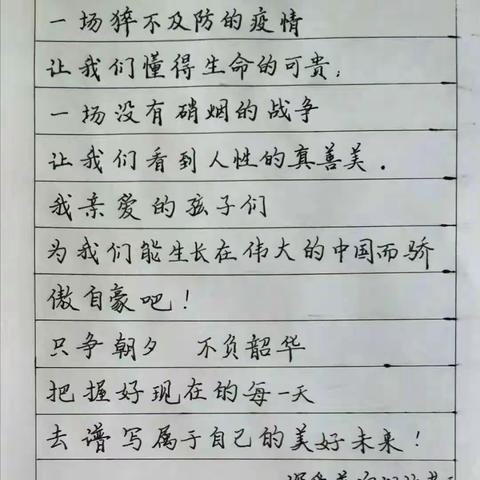 一场猝不及防的疫情
让我们懂得生命的可贵；
一场没有硝烟的战争
让我们看到人性的真善美．
我亲爱的孩子们
为我们能生长在伟大的中国而骄
傲自豪吧！
只争朝夕　不负韶华
把握好现在的每一天
去谱写属于自己的美好未来！